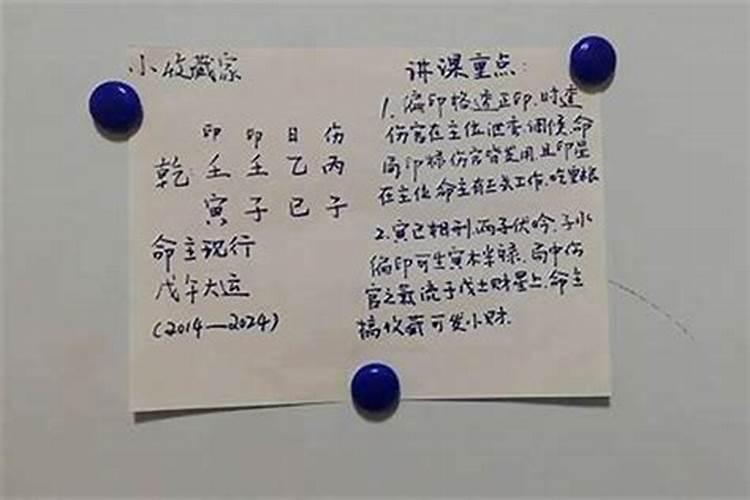 小收藏家
印 印 日 伤
乾 壬 壬 乙 丙
寅 子 巳 子
命主现行
戊午大运
(2014—2024)
讲课重点:
1. 偏印格透正印,时透
伤官在主位泄秀、调候,命
局印绵伤官皆美用,且印星
在主位,命主有正式工作,吃里根
2. 寅巳相刑,两子伏吟,子水
偏印可生寅木半禄,局中伤
官之气流于戊土财星上,命主
搞收藏可发小财.